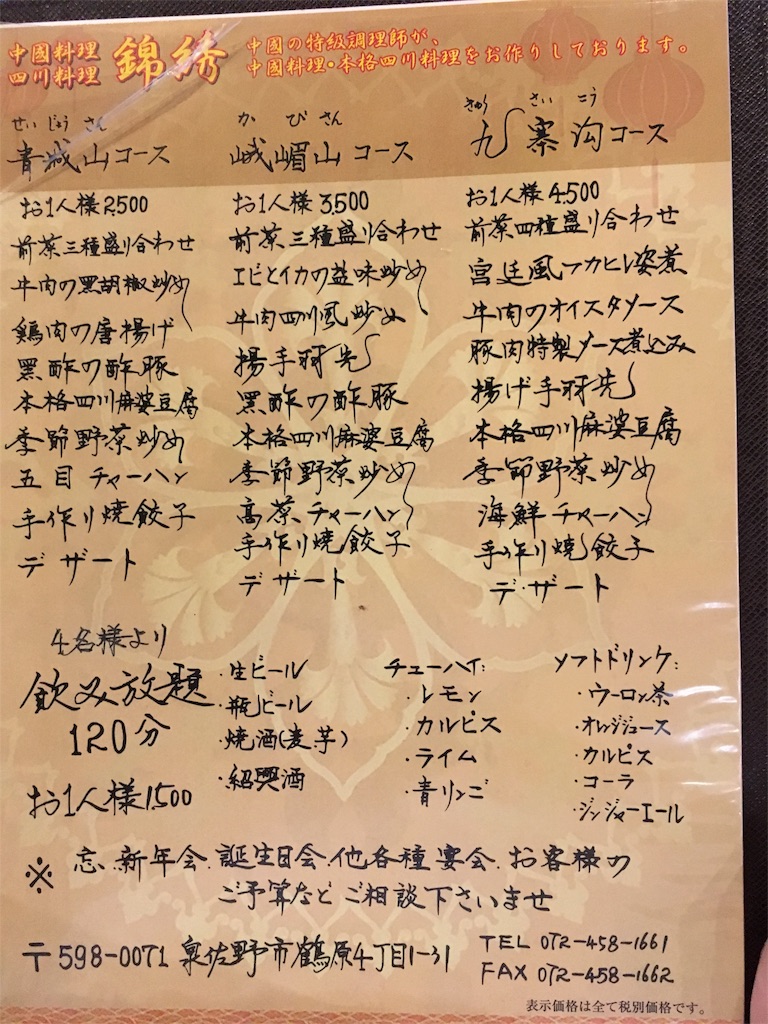 中國料理
四川料理
錦綉
中國の特級調理師が、
中國料理・本格四川料理をお作りしております。
せいじょうさん
青城山コース
お1人様2,500
前菜三種盛り合わせ
牛肉の黒胡椒炒め
鶏肉の唐揚げ
黒酢の酢豚
本格四川麻婆豆腐
季節野菜炒め
五目チャーハン
手作り焼餃子
デザート
かびさん
峨嵋山コース
お1人様3,500
前菜三種盛り合わせ
エビとイカの益味炒め
牛肉四川風炒め
揚手羽先
黒酢の酢豚
本格四川麻婆豆腐
季節野菜炒め
高菜チャーハン
手作り焼餃子
デザート
きゅうさいこう
九寨沟コース
お1人様4,500
前菜四種盛り合わせ
宮廷風フカヒレ姿煮
牛肉のオイスタソース
豚肉特製ソース煮込み
揚げ手羽先
本格四川麻婆豆腐
季節野菜炒め
海鮮チャーハン
手作り焼餃子
デザート
4名様より
飲み放題
120分
お1人様1,500
・生ビール
・瓶ビール
・焼酒(麦芋)
・紹興酒
チューハイ:
・レモン
・カルピス
・ライム
・青リンゴ
ソフトドリンク:
・ウーロン茶
・オレンジジュース
・カルピス
・コーラ
・ジンジャーエール
※ 忘.新年会.誕生日会.他各種宴会.お客様の
ご予算などご相談下さいませ
〒598-0071 泉佐野市鶴原4丁目1-31
TEL 072-458-1661
FAX 072-458-1662
表示価格は全て税別価格です。